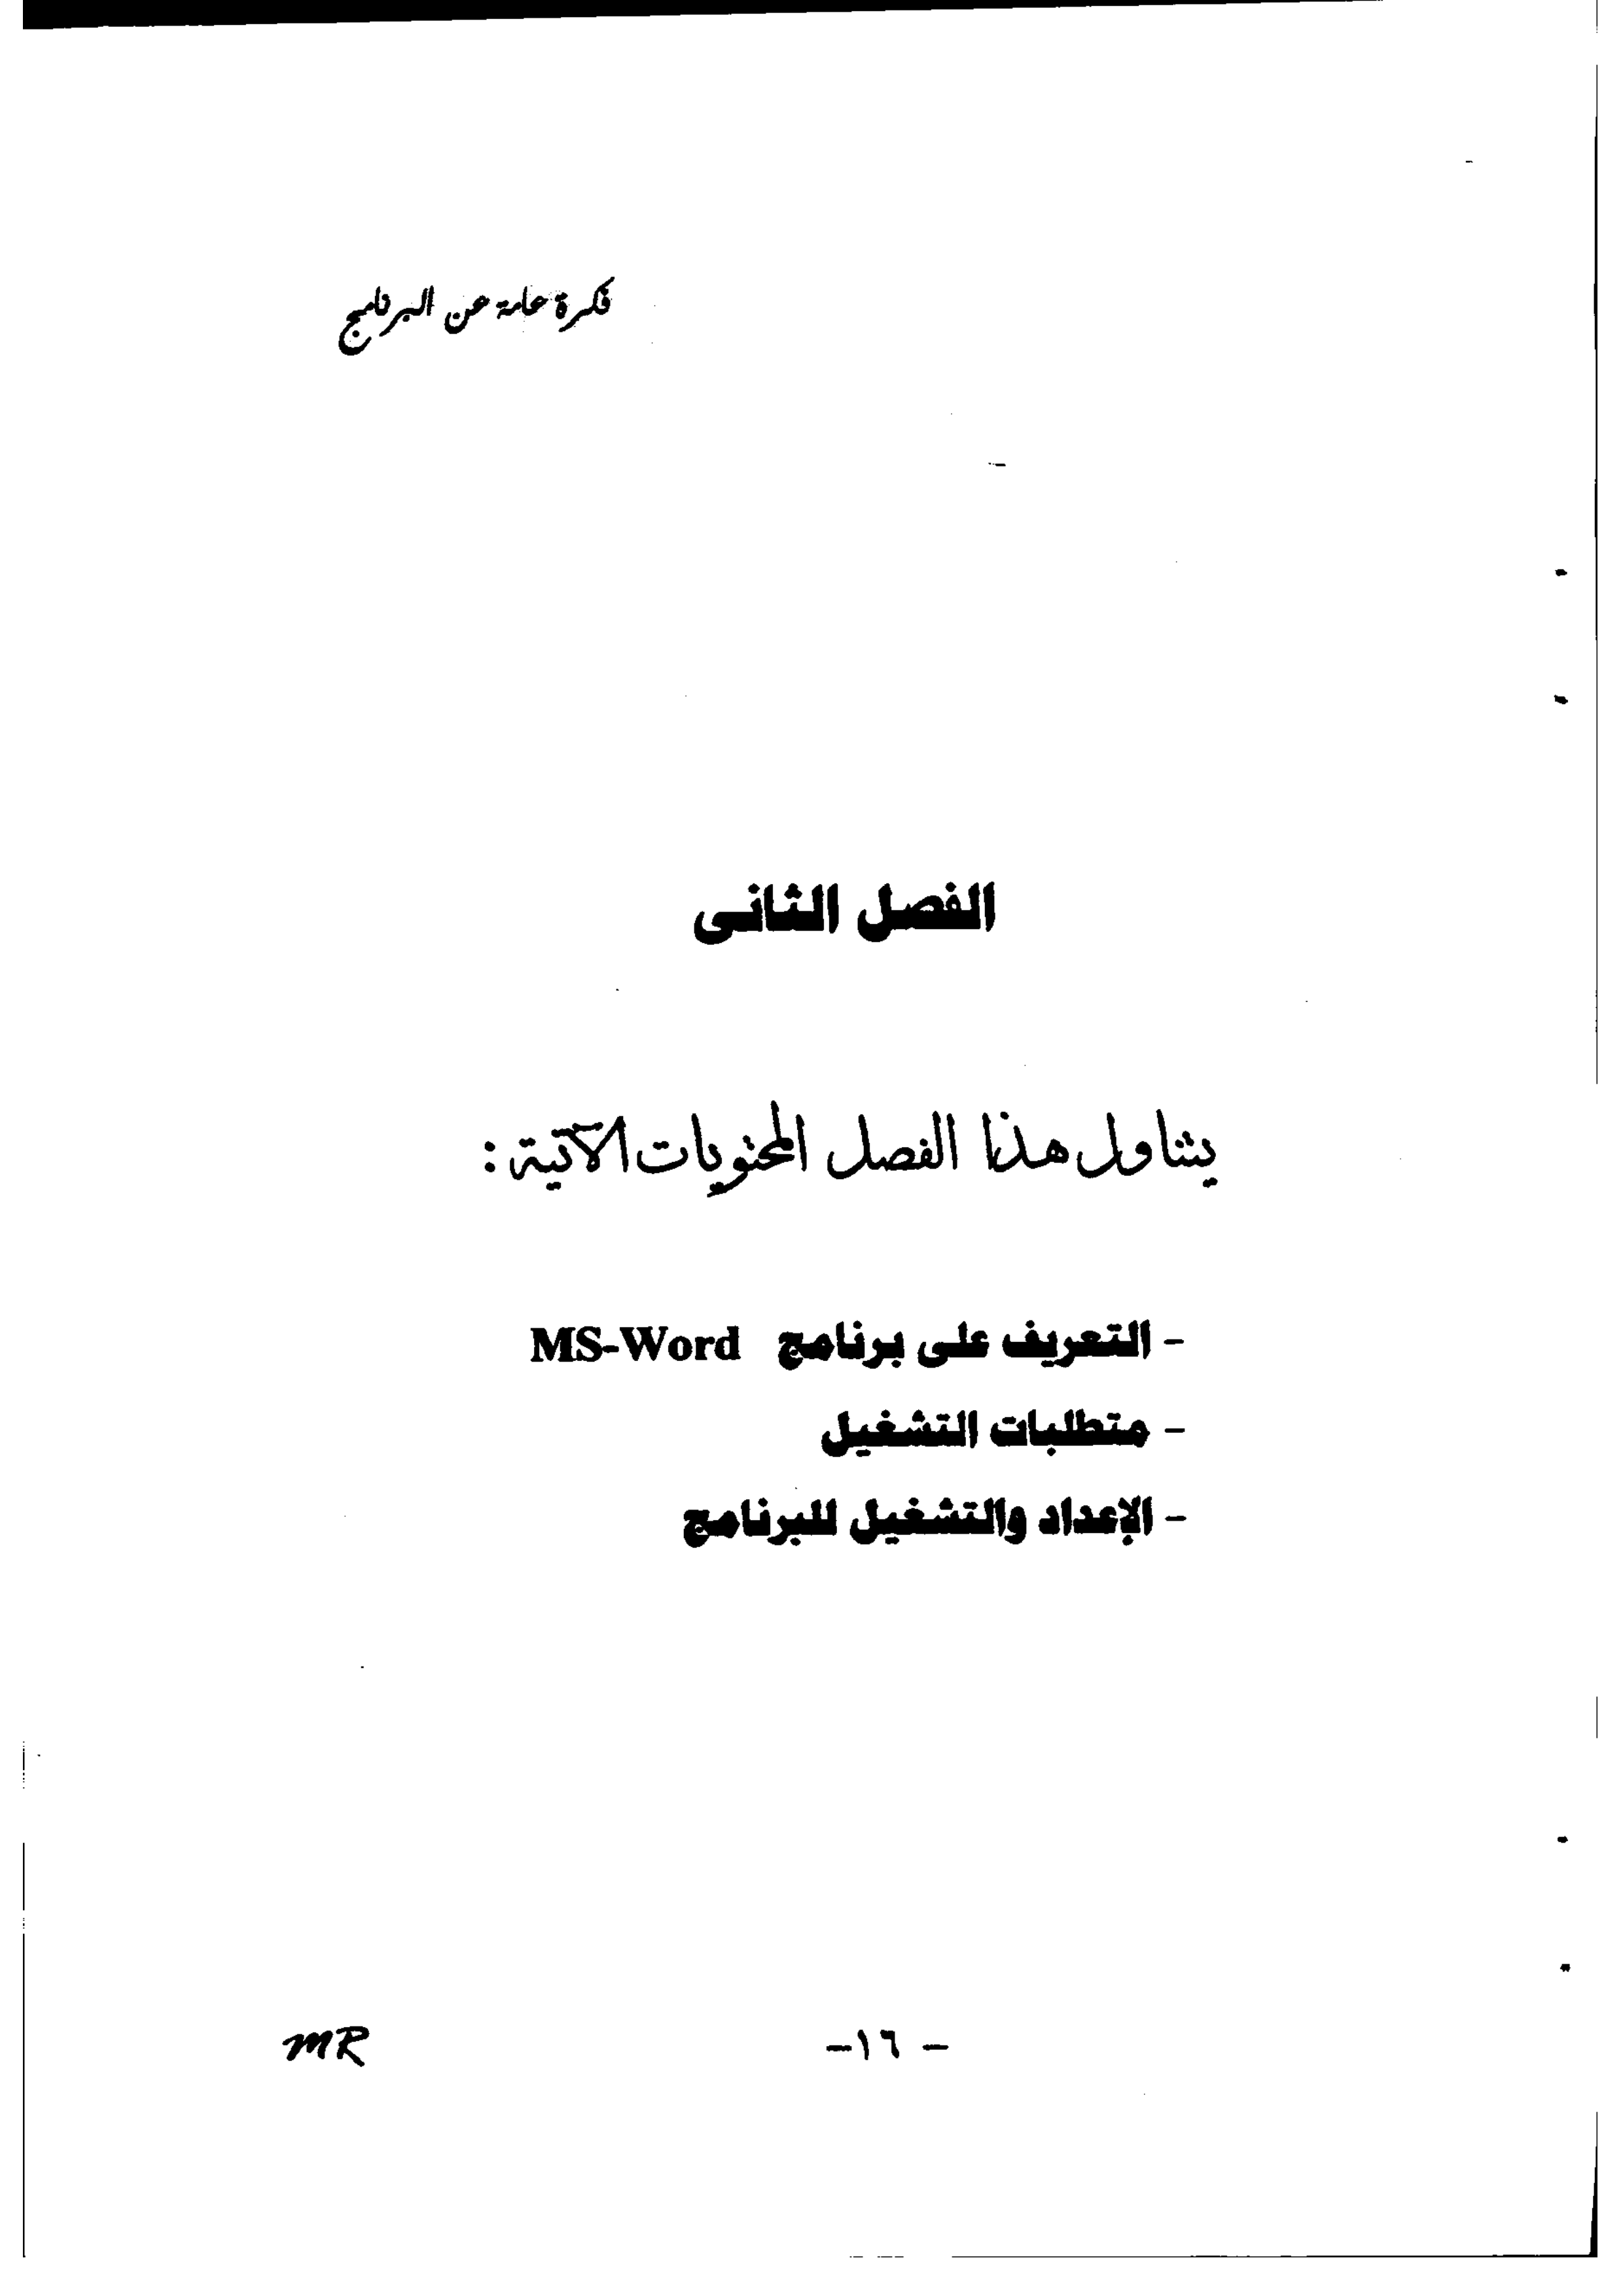 فكرة عامة عن البرنامج
الفصل الثانى
يتناول هذا الفصل المحتويات الآتية :
- التعريف على برنامج MS-Word
- متطلبات التشغيل
- الإعداد والتشغيل للبرنامج
- ١٦-
MR